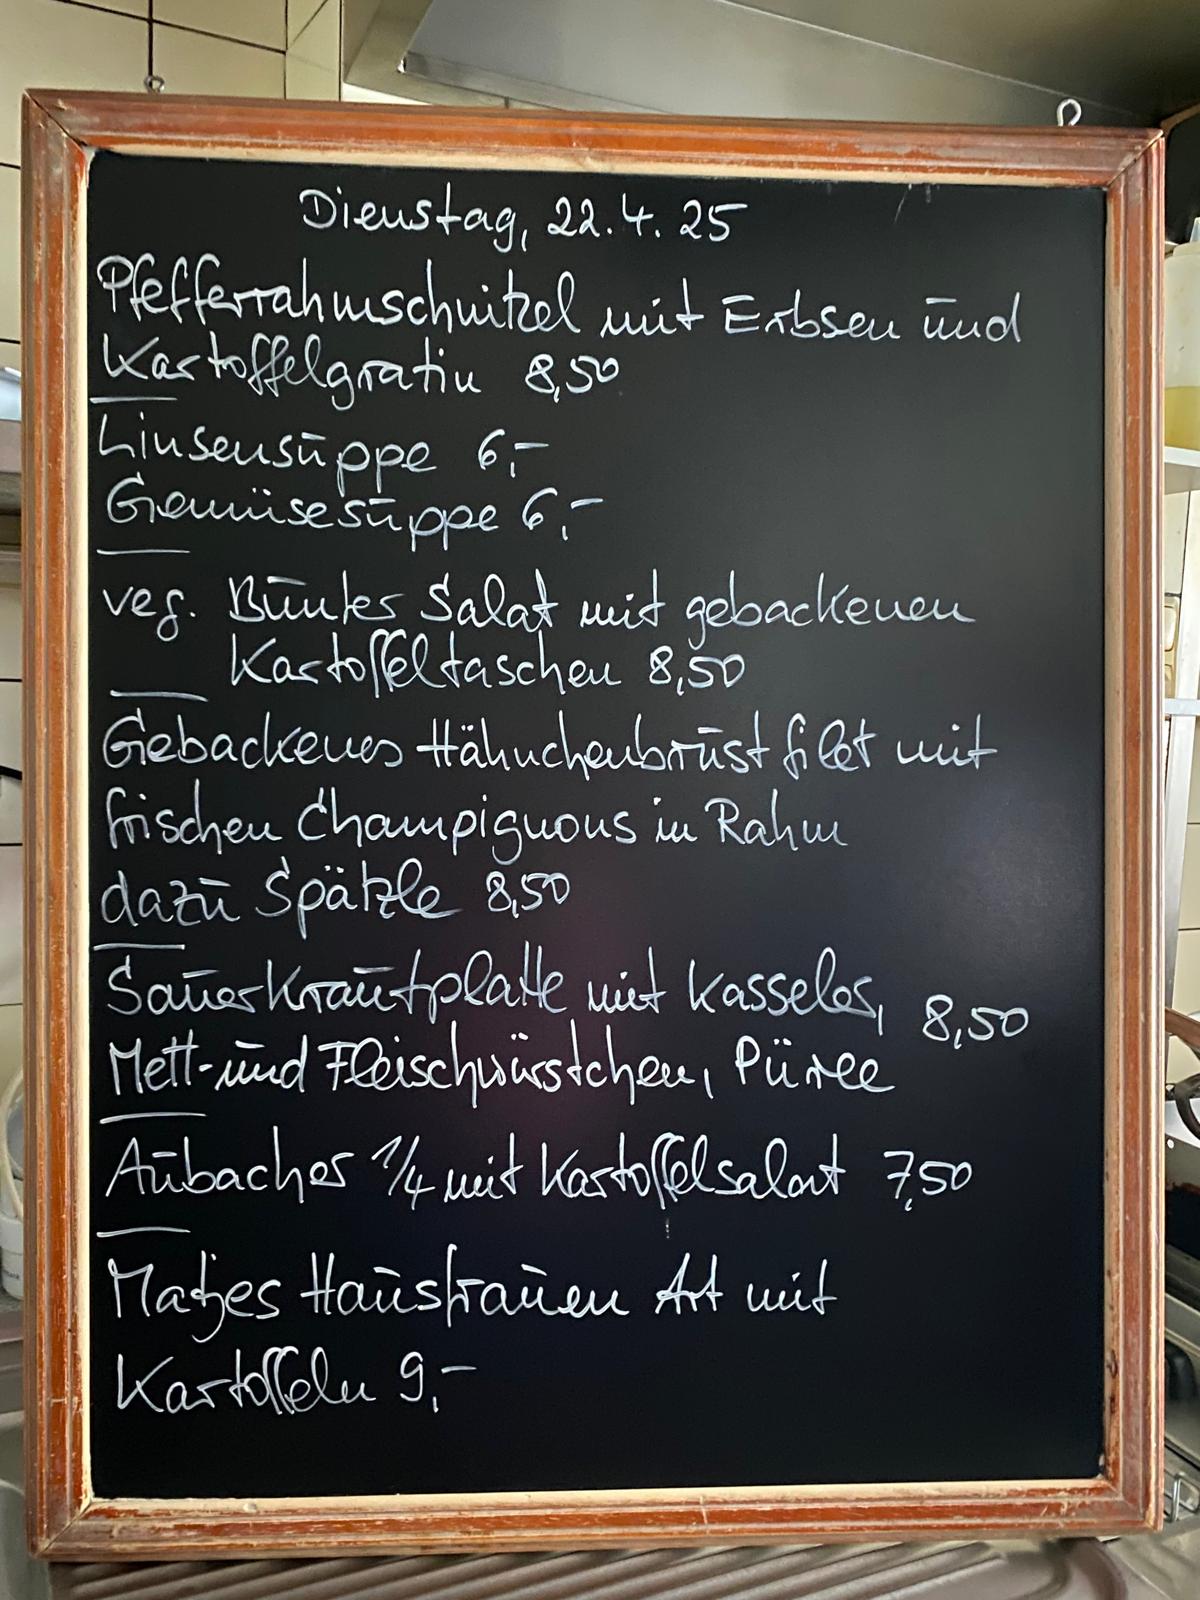 Dienstag, 22.4.25
Pfefferrahmschnitzel mit Erbsen und
Kartoffelgratin 8,50
Linsensuppe 6,-
Gemüsesuppe 6,-
veg. Bunter Salat mit gebackenen
Kartoffeltaschen 8,50
Gebackenes Hähnchenbrustfilet mit
frischen Champignons in Rahm
dazu Spätzle 8,50
Sauerkrautplatte mit Kasseler, 8,50
Mett- und Fleischwürstchen, Püree
Aubacher 1/4 mit Kartoffelsalat 7,50
Matjes Hausfrauen Art mit
Kartoffeln 9,-